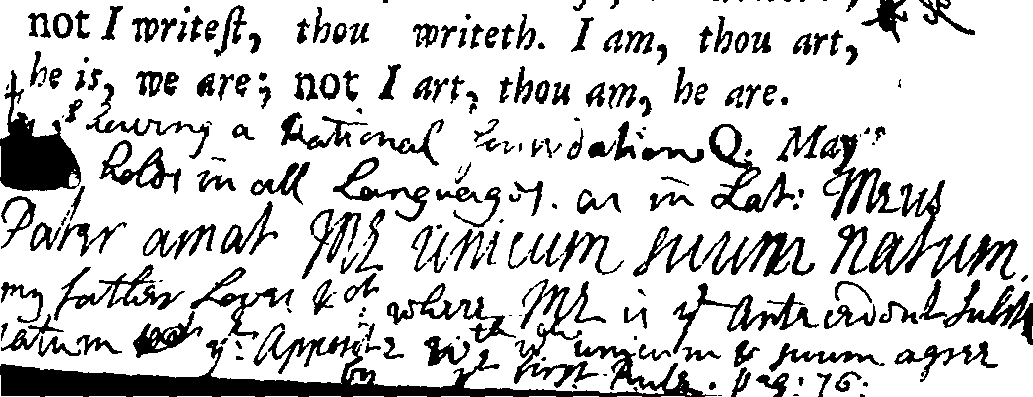 not I writeſt, thou writeth. I am, thou art,
he is, we are; not I art, thou am, he are.
having a Rational foundation Q: May
holds in all Languages. as in Lat: Meus
Pater amat Me unicum suum natum,
my father Loves &c: where Me is ye Antecedent Subst
natum ye: Apposit: with unicum & suum agree
by ye first Rule. pag: 76: